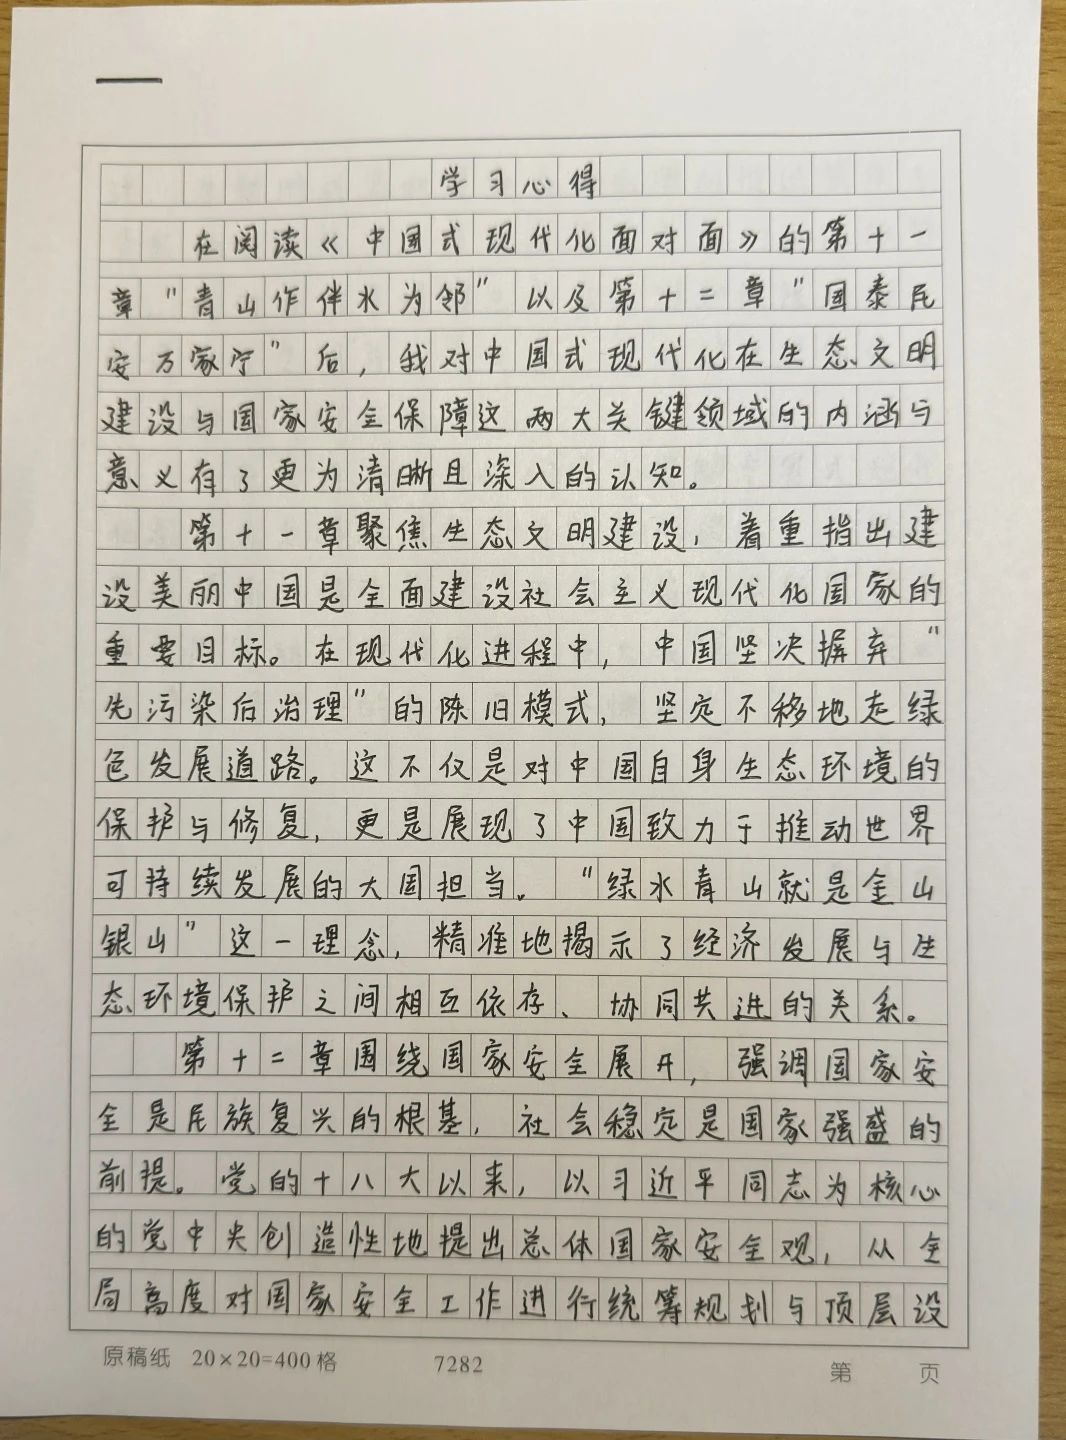 学习心得
在阅读《中国式现代化面对面》的第十一
章"青山作伴水为邻"以及第十二章"国泰民
安万家宁"后，我对中国式现代化在生态文明
建设与国家安全保障这两大关键领域的内涵与
意义有了更为清晰且深入的认知。
第十一章聚焦生态文明建设，着重指出建
设美丽中国是全面建设社会主义现代化国家的
重要目标。在现代化进程中，中国坚决摒弃"
先污染后治理"的陈旧模式，坚定不移地走绿
色发展道路。这不仅是对中国自身生态环境的
保护与修复，更是展现了中国致力于推动世界
可持续发展的大国担当。"绿水青山就是金山
银山"这一理念，精准地揭示了经济发展与生
态环境保护之间相互依存、协同共进的关系。
第十二章围绕国家安全展开，强调国家安
全是民族复兴的根基，社会稳定是国家强盛的
前提。党的十八大以来，以习近平同志为核心
的党中央创造性地提出总体国家安全观，从全
局高度对国家安全工作进行统筹规划与顶层设
原稿纸 20×20=400格 7282 第 页